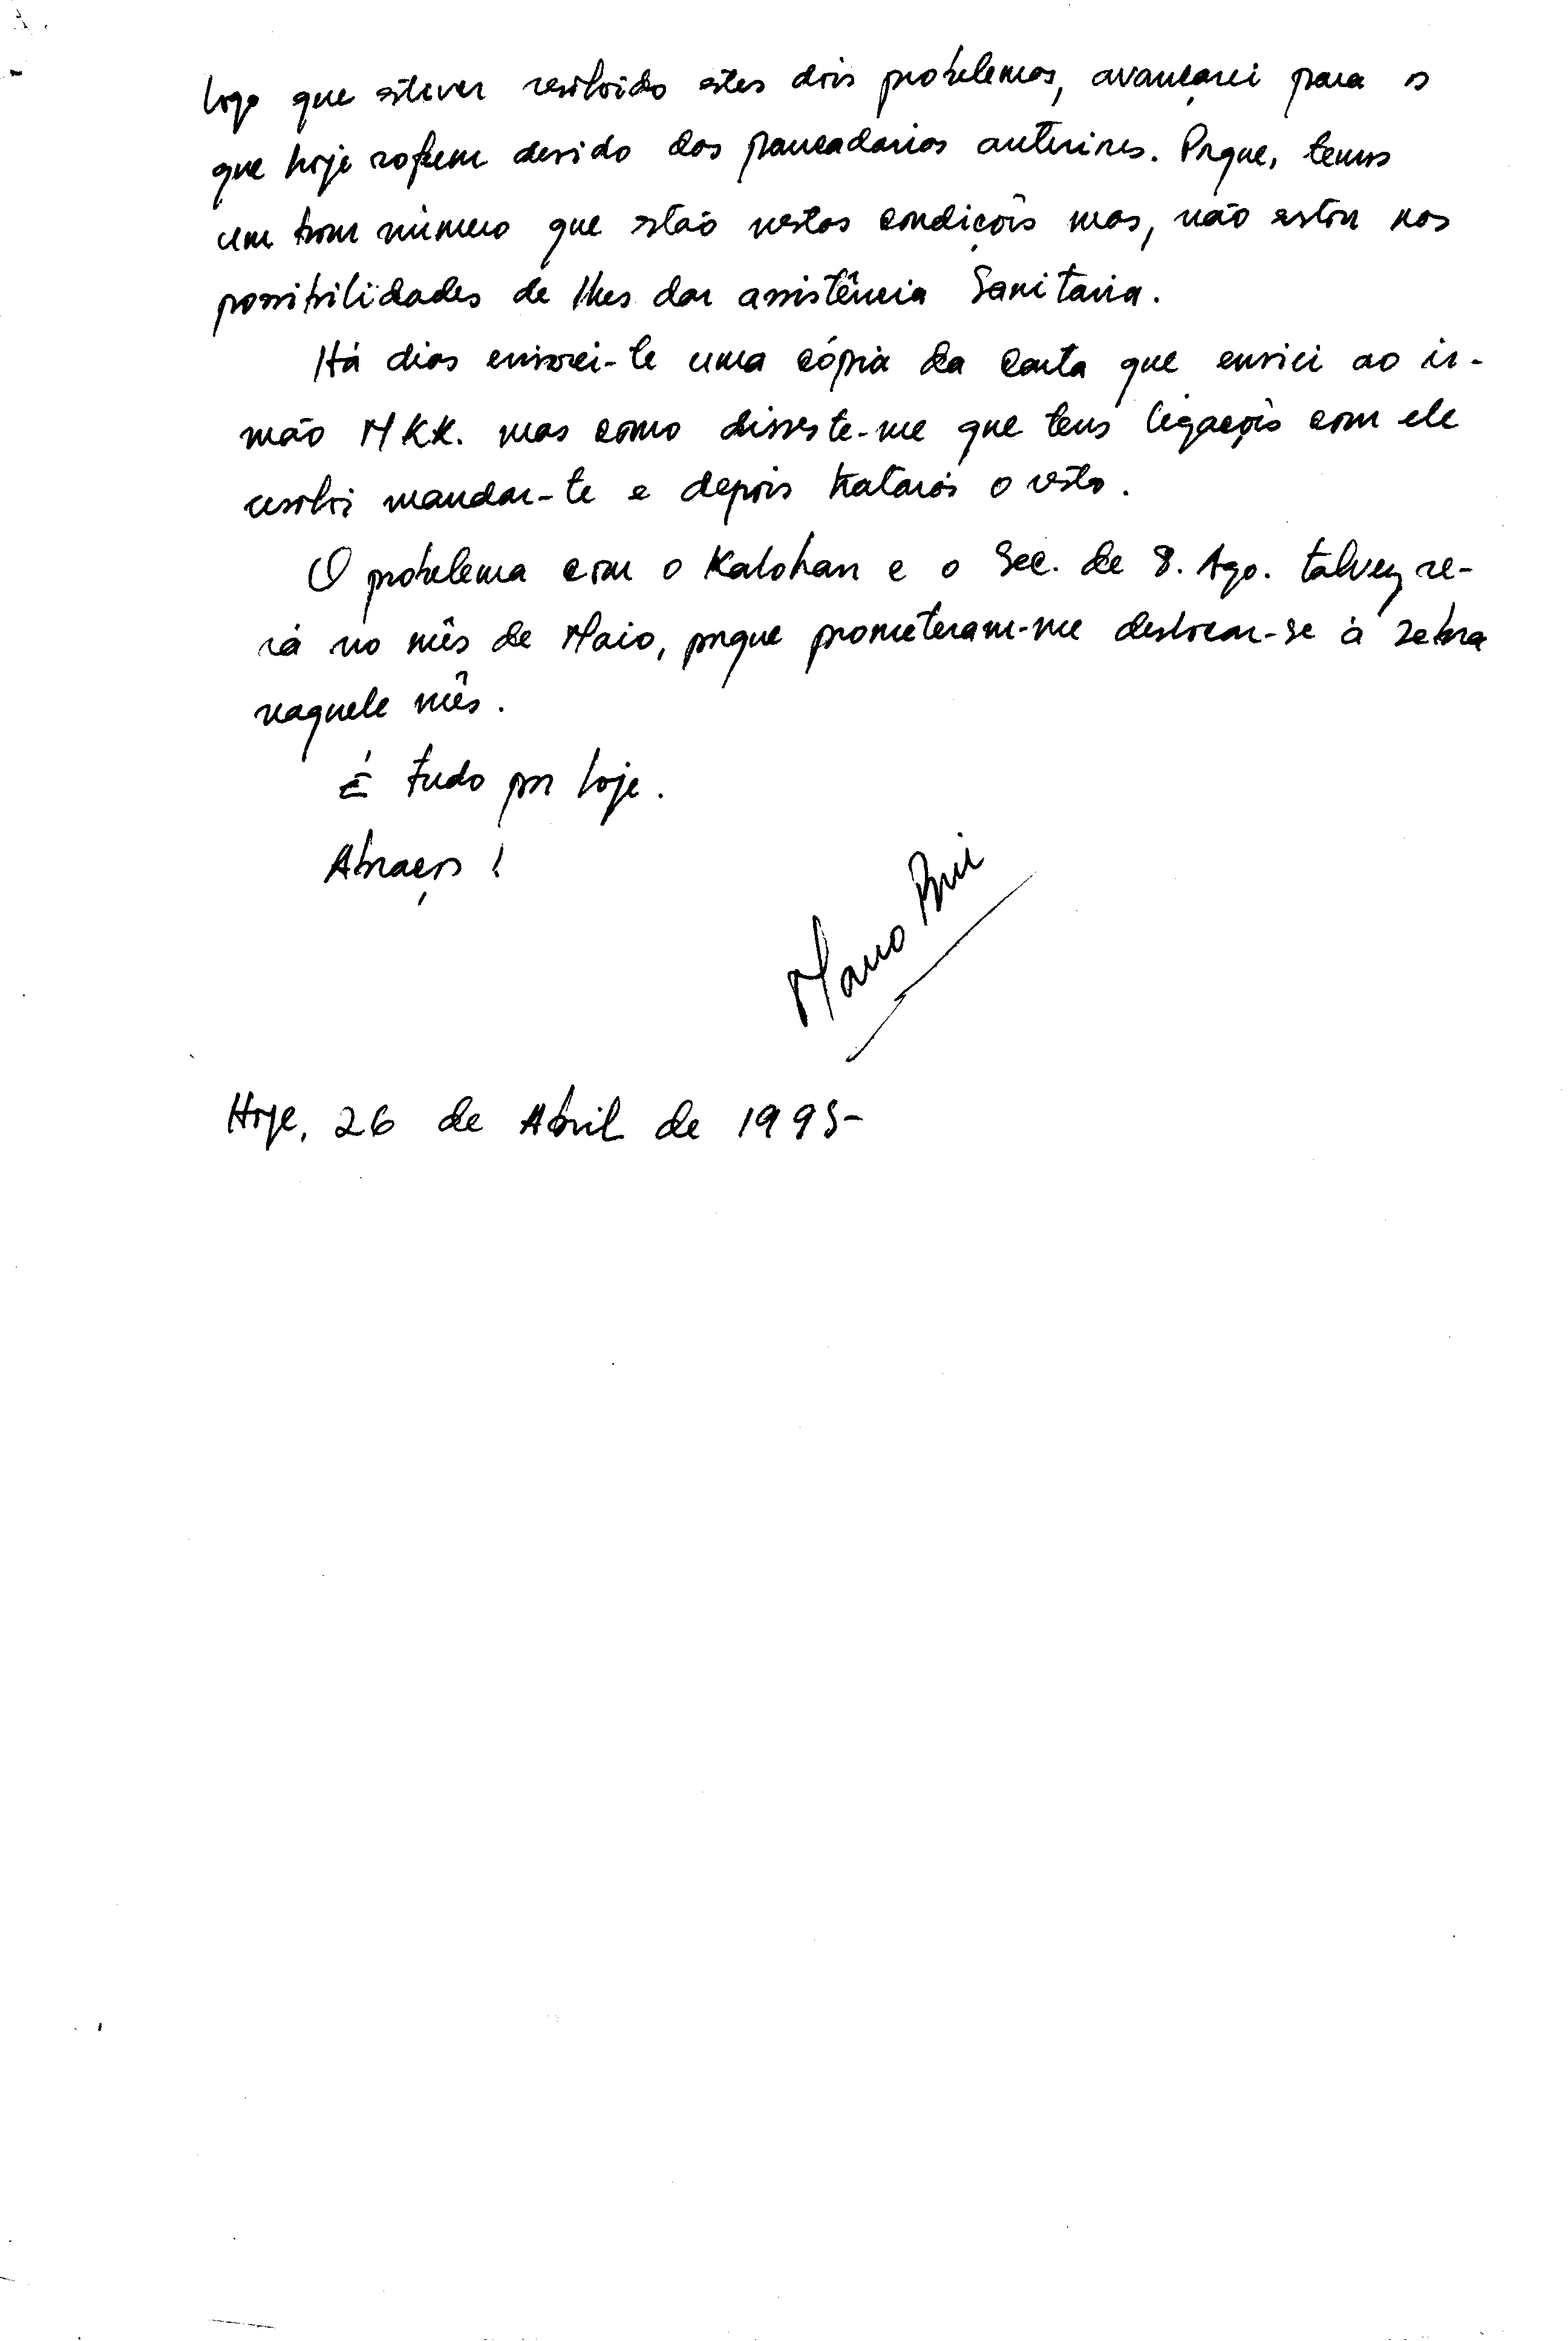 logo que estiver resolvido estes dois problemas, avançarei para os
que hoje sofrem devido das pancadarias anteriores. Porque, temos
um bom número que estão nestas condições mas, não estou nas
possibilidades de lhes dar assistência Sanitaria.
Há dias enviei-te uma cópia da carta que enviei ao ir-
mão MKK. mas como disseste-me que tens ligações com ele
resolvi mandar-te e depois tratarás o resto.
O problema com o Kalohan e o Sec. de 8. Ago. talvez se-
rá no mês de Maio, porque prometeram-me deslocar-se à Zebra
naquele mês.
É tudo por hoje.
Abraços!
Mano
Hoje, 26 de Abril de 1995-